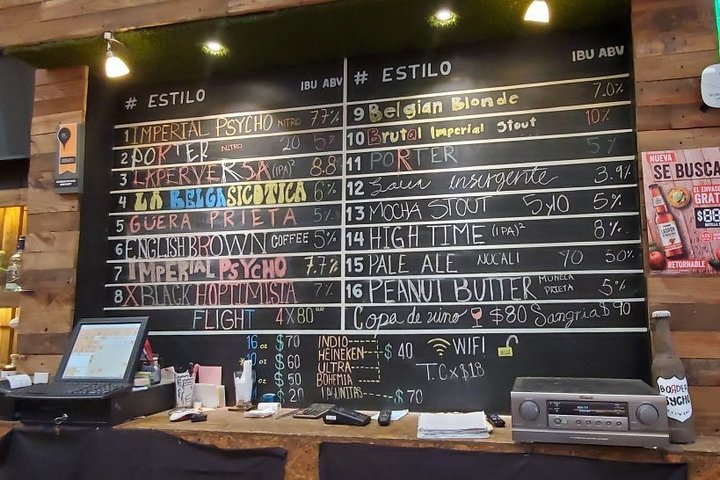 # ESTILO IBU ABV
1 IMPERIAL PSYCHO NITRO 7.7%
2 PORTER NITRO 20 5%
3 LAPERVERSA (IPA)² 8.8%
4 LA BELGASICOTICA 6%
5 GUERA PRIETA 5%
6 ENGLISH BROWN COFFEE 5%
7 IMPERIAL PSYCHO 7.7%
8 XBLACK HOPTIMISTA 7%
FLIGHT 4X80
# ESTILO IBU ABV
9 Belgian Blonde 7.0%
10 Brutal Imperial Stout 10%
11 PORTER 5%
12 Saur insurgente 3.9%
13 MOCHA STOUT 5%
14 HIGH TIME (IPA)² 8%
15 PALE ALE NUCALI 70 5.0%
16 PEANUT BUTTER MUÑECA PRIETA 5%
Copa de vino $80 Sangria $90
16 oz $70
$60
$50
$20
INDIO
HEINEKEN
ULTRA
BOHEMIA
$40
LAGUNITAS $70
WIFI
T.C x $18
NUEVA
SE BUSCA
EL ENVASE
GRATIS
RETORNABLE
BORDER
PSYCHO